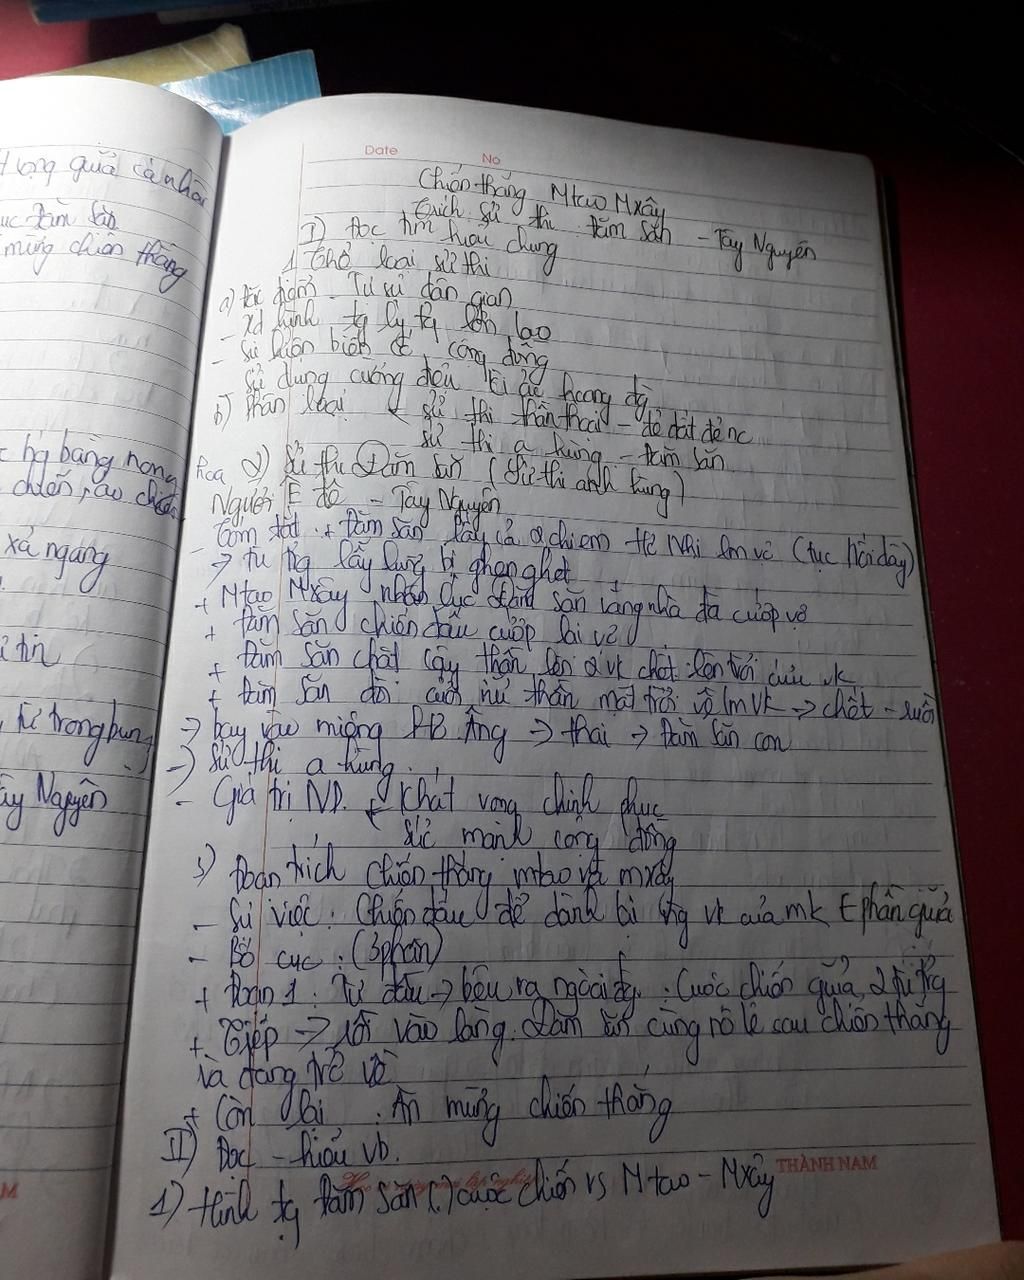 Date No
Chiến thắng Mtao Mxây
Trích sử thi Đăm Săn - Tây Nguyên
I) Đọc tìm hiểu chung
1 Thể loại sử thi
a) Đặc điểm - Tự sự dân gian
- Xd hình tg kỳ tg lớn lao
- Sự kiện biến cố cộng đồng
sử dụng cường điệu
b) Phân loại sử thi thần thoại - đẻ đất đẻ nc
sử thi a hùng - Đăm Săn
2) Sử thi Đăm Săn (Sử thi anh hùng)
Người Ê đê - Tây Nguyên
- Tóm tắt + Đăm Săn lấy cả 2 chị em Hơ Nhị lm vợ (tục nối dây)
→ tù trg lẫy lừng bị ghen ghét
+ Mtao Mxây nhân lúc Đăm Săn vắng nhà đã cướp vợ
+ Đăm Săn chiến đấu cướp lại vợ
+ Đăm Săn chặt cây thần lên 2 vk chết lên trời cứu vk
+ Đăm Săn đòi cưới nữ thần mặt trời về lm vk → chết -
→ bay vào miệng Âng → thai → Đăm Săn con
→ Sử thi a hùng
- Giá trị ND. Khát vọng chinh phục
sức mạnh cộng đồng
3) Đoạn trích chiến thắng mtao và mxây
- Sự việc: Chiến đấu để dành lại vk của mk
- Bố cục: (3 phần)
+ Đoạn 1: Từ đầu → bêu ra ngoài đg: Cuộc chiến giữa 2 tù trg
+ Tiếp → rồi vào làng. Đăm Săn cùng nô lệ sau chiến thắng
và đang trở về
+ Còn lại: Ăn mừng chiến thắng
II) Đọc - hiểu vb.
1) Hình tg Đăm Săn (.) cuộc chiến vs Mtao - Mxây
THÀNH NAM
cá nhân
Đăm Săn
mừng chiến thắng
bằng
chiến
xả ngang
trong bụng
Tây Nguyên